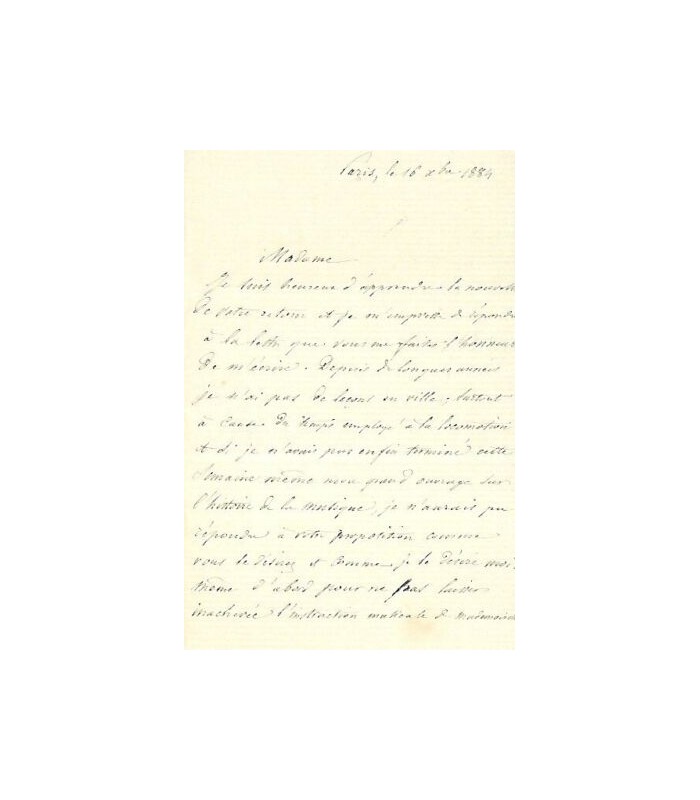 Paris, le 16 xbre 1884
Madame
Je suis heureux d'apprendre la nouvelle
de votre retour et je m'empresse de répondre
à la lettre que vous me faites l'honneur
de m'écrire. Depuis de longues années
je n'ai pas de leçons en ville, surtout
à cause du temps employé à la locomotion
et si je n'avais pas enfin terminé cette
semaine même mon grand ouvrage sur
l'histoire de la musique, je n'aurais pu
répondre à votre proposition comme
vous le désirez et comme je le désire moi
même d'abord pour ne pas laisser
inachevée l'instruction musicale de Mademoiselle